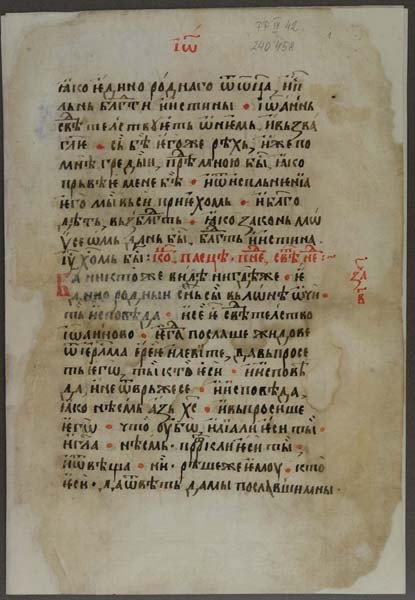 іѡ҃
ꙗко єдинороднаго ѿ ѿца, исп
льнь блг҃ти и истины · іѡаннь
свѣтелствуѥть ѡ нѥмь, и вьзва
гл҃ѥ · сь бѣ ѥгоже рѣхь, иже по
мнѣ греды, прѣ мною бы, ꙗко
прьвѣѥ мене бѣ · и ѿ испльнѥнїа
ѥго мы вьси прїехомь · и благо
дѣть, вьз благть · ꙗко законь мѡ
ѵсеѡмь дань бы, благть и истина
іу хомь бы :
Ба никтоже видѣ нигдѣже · ѥ
динородныи сн҃ь сы вь лѡнѣ ѡч҃и
ть исповѣда · и се ѥ свѣтелство
іѡанново · ѥга послаше жидове
ѿ іерл҃ма ереѥ и левїте, да выпросе
ть ѥго, ты кто ѥси · и исповѣ
да, и не ѿврьжесе · и исповѣда,
ꙗко нѣсмь азь хс҃ · и выпросише
ѥго · что ѹбѡ, илїа ли ѥси ты ·
и гл҃а нѣсмь · пророкь ли ѥси ты ·
и ѿвѣща · ни · рѣшеже ѥмоу · кто
ѥси · да ѿвѣть дамы пославшимь ны ·